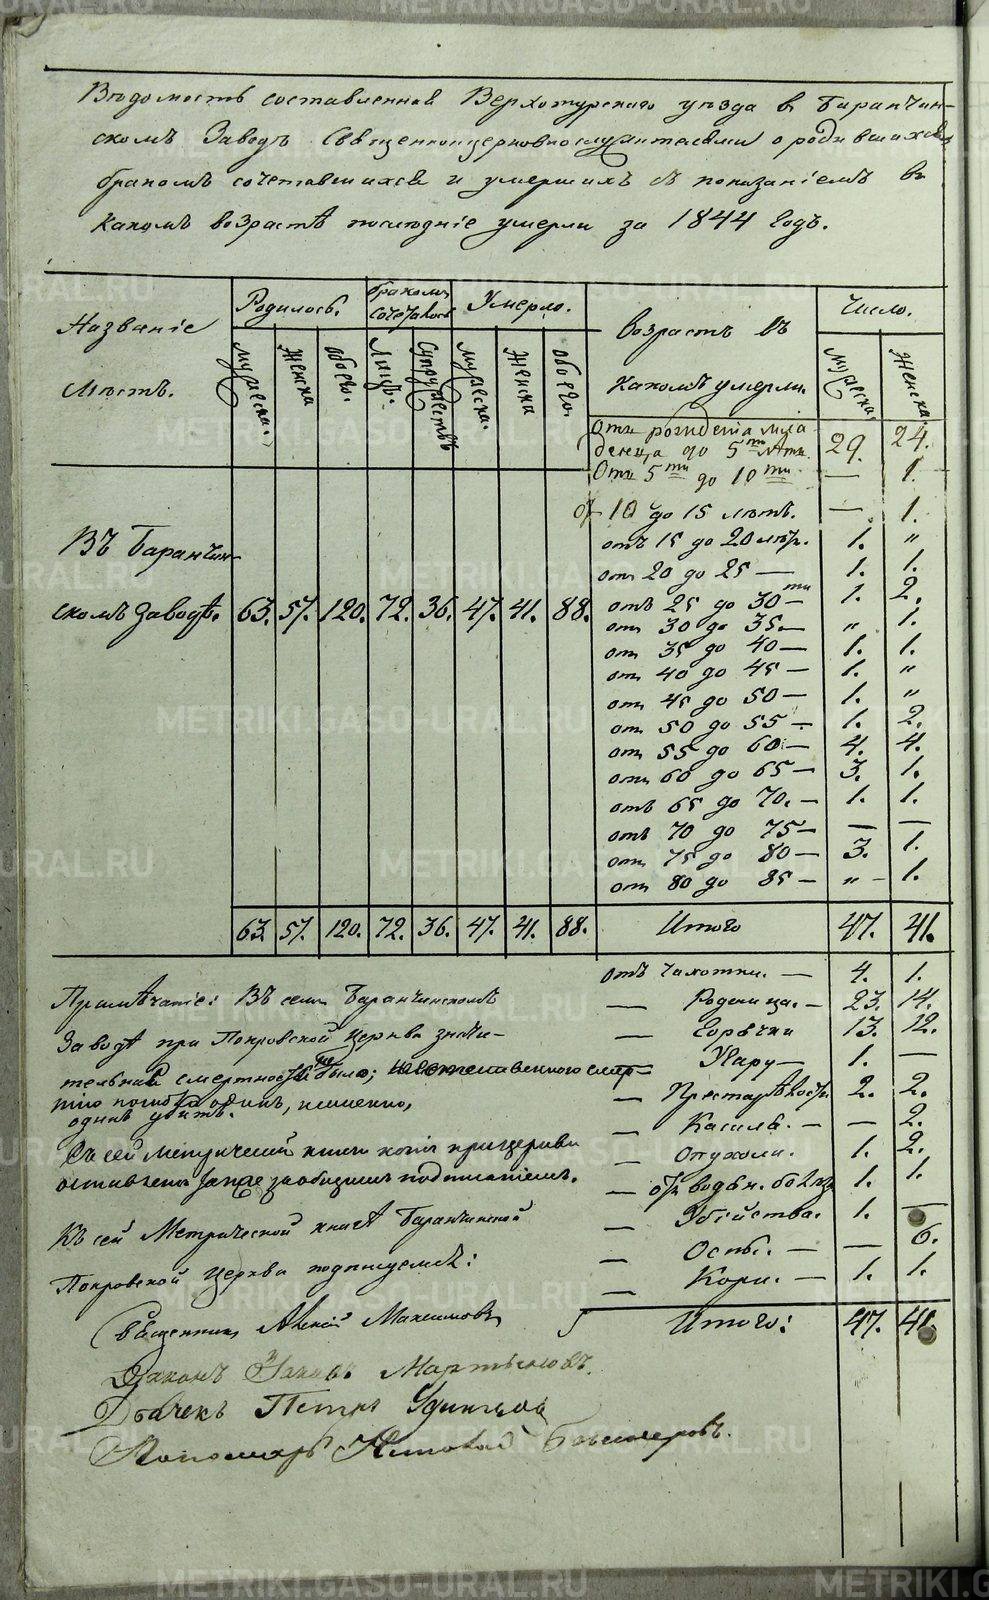 Вѣдомость составленная Верхотурскаго уѣзда въ Баранчин-
скомъ Заводѣ Священноцерковнослужителями о родившихся
бракомъ сочетавшихся и умершихъ съ показаніемъ въ
какомъ возрастѣ послѣдніе умерли за 1844 Годъ.
Названіе Мѣстъ.
Родилось.
бракомъ сочеталось
Умерло.
Возрастъ въ
какомъ умерли.
Число.
Мужеска.
Женска
обоего.
Лицъ.
Супружествъ
Мужеска.
Женска
обоего.
Мужеска.
Женска.
Отъ рожденія мла-
денца до 5ти лѣтъ. 29. 24.
Отъ 5ти до 10ти — 1.
от 10 до 15 лѣтъ. — 1.
отъ 15 до 20 лѣтъ. 1. "
отъ 20 до 25 — 1. 1.
отъ 25 до 30ти — 1. 2.
отъ 30 до 35 — " 1.
отъ 35 до 40 — 1. 1.
отъ 40 до 45 — 1. "
отъ 45 до 50 — 1. "
отъ 50 до 55 — 1. 2.
отъ 55 до 60 — 4. 4.
отъ 60 до 65 — 3. 1.
отъ 65 до 70. — 1. 1.
отъ 70 до 75 — — —
отъ 75 до 80 — 3. 1.
отъ 80 до 85 — " - 1.
Въ Баранчин-
скомъ заводѣ. 63. 57. 120. 72. 36. 47. 41. 88.
63. 57. 120. 72. 36. 47. 41. 88. Итого 47. 41.
Примѣчаніе: Въ семъ Баранчинскомъ
Заводѣ при Покровской Церкви значи-
тельной смертности не было;
одинъ, именно,
одинъ убитъ.
Съ сей метрической книги копія при церкви
оставлена за общимъ подписаніемъ.
Къ сей Метрической книгѣ Баранчинской
Покровской Церкви подписуемся:
Священникъ Алексій Максимовъ
Діаконъ Іаковъ Мартыновъ.
Дьячекъ Петръ Удинцовъ
Пономарь
отъ Чахотки. — 4. 1.
— Родимца. — 23. 14.
— Горячки 13. 12.
— Жару — 1. —
— Престарѣлости 2. 2.
— Кашля. — — 2.
— Опухоли. 1. 2.
— от водян. болѣз 1. 1.
— Убійства. 1. —
— Оспы. — — 6.
— Кори. — 1. 1.
Итого: 47. 41.
METRIKI.GASO-URAL.RU